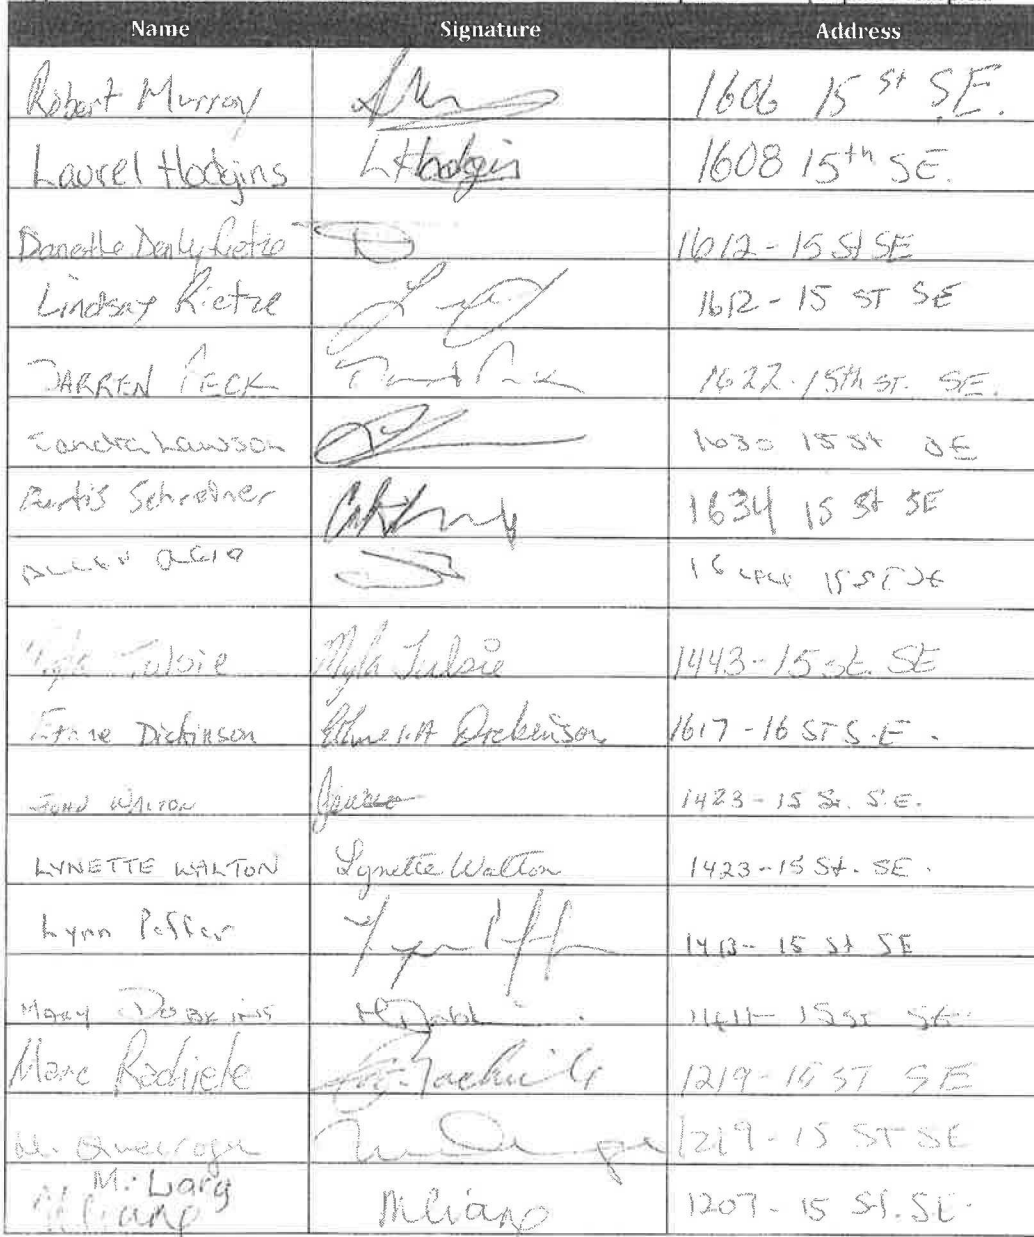 Name Signature Address
Robert Murray 1606 15 St S.E.
Laurel Hodgins L Hodgins 1608 15th SE.
Danette Denly Rietze 1612 - 15 St SE
Lindsay Rietze 1612 - 15 ST SE
DARREN PECK 1622 - 15th ST. SE.
Sandra Lawson 1630 15 St SE
Curtis Schreiner 1634 15 St SE
15 ST SE
Myla Tulsie Myla Tulsie 1443 - 15 St. SE
Dickinson Dickinson 1617 - 16 ST S.E.
JOHN WALTON 1423 - 15 St. S.E.
LYNETTE WALTON Lynette Walton 1423 - 15 St. SE.
Lynn Peffer 1413 - 15 St SE
MARY DOBKINS 1411 - 15 ST SE
Marc 1219 - 15 ST SE
1219 - 15 ST SE
M. 1207 - 15 St. SE.